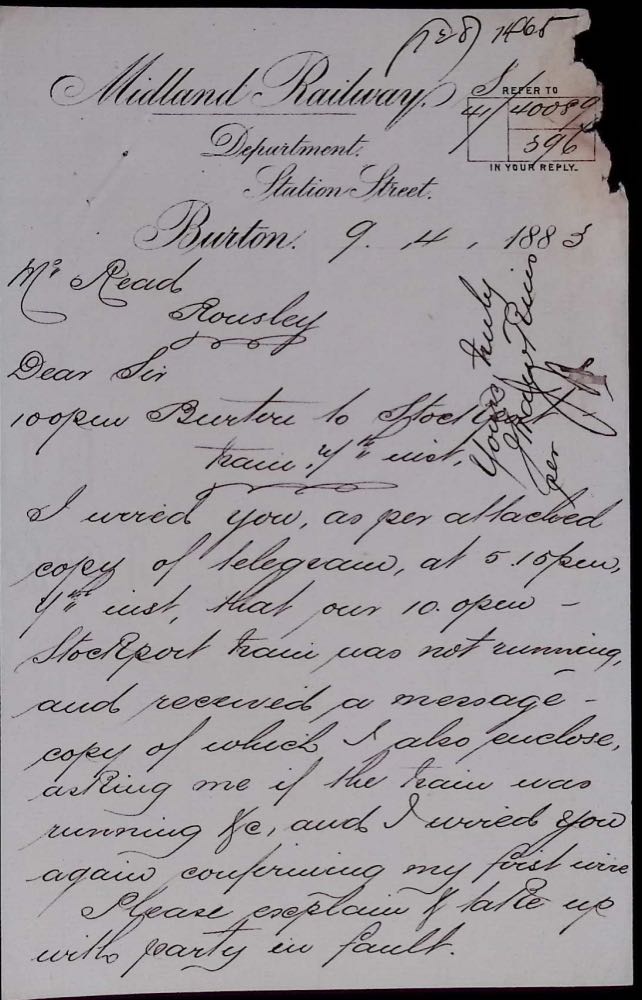 (728) 1465
Midland Railway.
REFER TO
S/
41/40089
396
IN YOUR REPLY.
Department.
Station Street.
Burton. 9. 4. 1883
Mr Read
Rowsley
Dear Sir
10 0 pm Burton to Stockport
train, 7th inst,
I wired you, as per attached
copy of telegram, at 5.15 pm,
7th inst, that our 10.0 pm -
Stockport train was not running,
and received a message -
copy of which I also enclose,
asking me if the train was
running &c, and I wired you
again confirming my first wire
Please explain & take up
with party in fault.
Yours truly
per